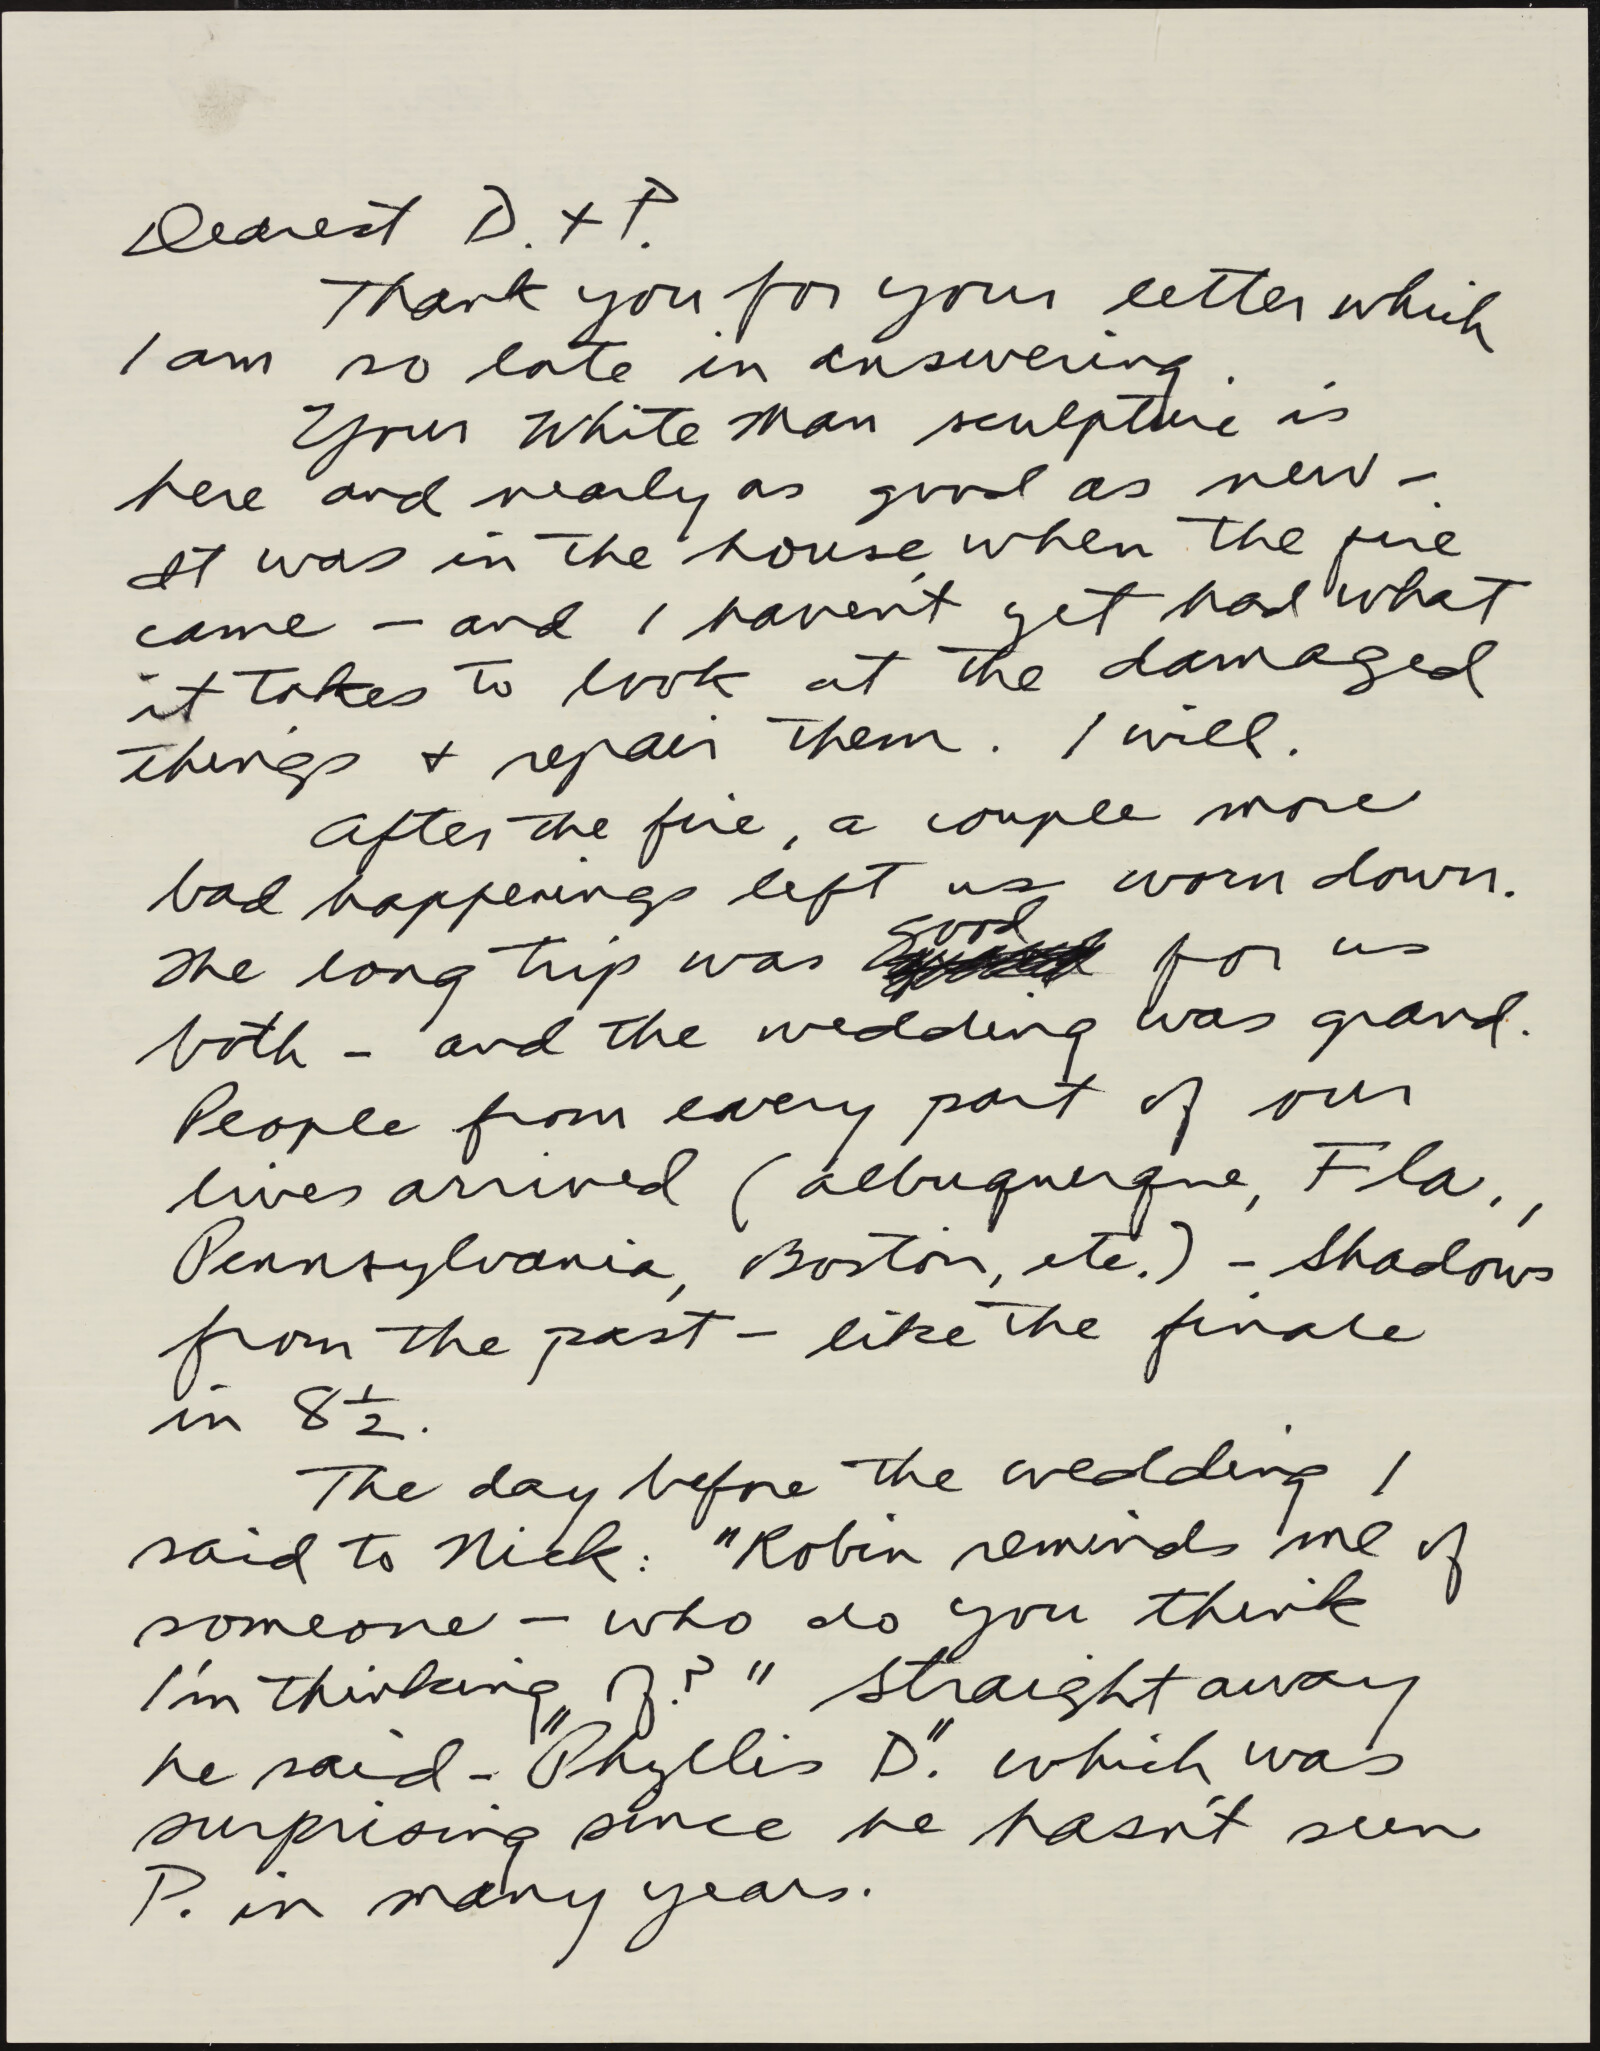 Dearest D. + P.
Thank you for your letter which
I am so late in answering.
Your White Man sculpture is
here and nearly as good as new -
It was in the house when the fire
came - and I haven't yet had what
it takes to look at the damaged
things + repair them. I will.
After the fire, a couple more
bad happenings left us worn down.
The long trip was good for us
both - and the wedding was grand.
People from every part of our
lives arrived (Albuquerque, Fla.,
Pennsylvania, Boston, etc.) - Shadows
from the past - like the finale
in 8½.
The day before the wedding I
said to Nick: "Robin reminds me of
someone - who do you think
I'm thinking of?" Straight away
he said - "Phyllis D." which was
surprising since he hasn't seen
P. in many years.